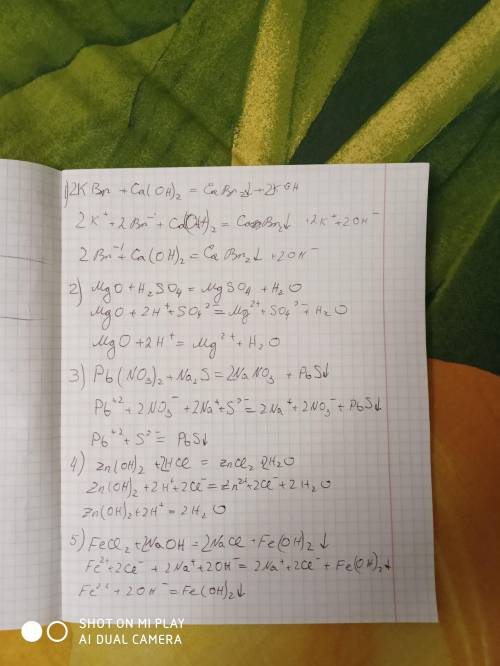 1) 2KBr + Ca(OH)₂ = CaBr₂↓ + 2KOH
2K⁺ + 2Br⁻¹ + Ca(OH)₂ = CaBr₂↓ + 2K⁺ + 2OH⁻
2Br⁻¹ + Ca(OH)₂ = CaBr₂↓ + 2OH⁻
2) MgO + H₂SO₄ = MgSO₄ + H₂O
MgO + 2H⁺ + SO₄²⁻ = Mg²⁺ + SO₄²⁻ + H₂O
MgO + 2H⁺ = Mg²⁺ + H₂O
3) Pb(NO₃)₂ + Na₂S = 2NaNO₃ + PbS↓
Pb⁺² + 2NO₃⁻ + 2Na⁺ + S²⁻ = 2Na⁺ + 2NO₃⁻ + PbS↓
Pb⁺² + S²⁻ = PbS↓
4) Zn(OH)₂ + 2HCl = ZnCl₂ + 2H₂O
Zn(OH)₂ + 2H⁺ + 2Cl⁻ = Zn²⁺ + 2Cl⁻ + 2H₂O
Zn(OH)₂ + 2H⁺ = 2H₂O
5) FeCl₂ + 2NaOH = 2NaCl + Fe(OH)₂↓
Fe²⁺ + 2Cl⁻ + 2Na⁺ + 2OH⁻ = 2Na⁺ + 2Cl⁻ + Fe(OH)₂↓
Fe²⁺ + 2OH⁻ = Fe(OH)₂↓
SHOT ON MI PLAY
AI DUAL CAMERA